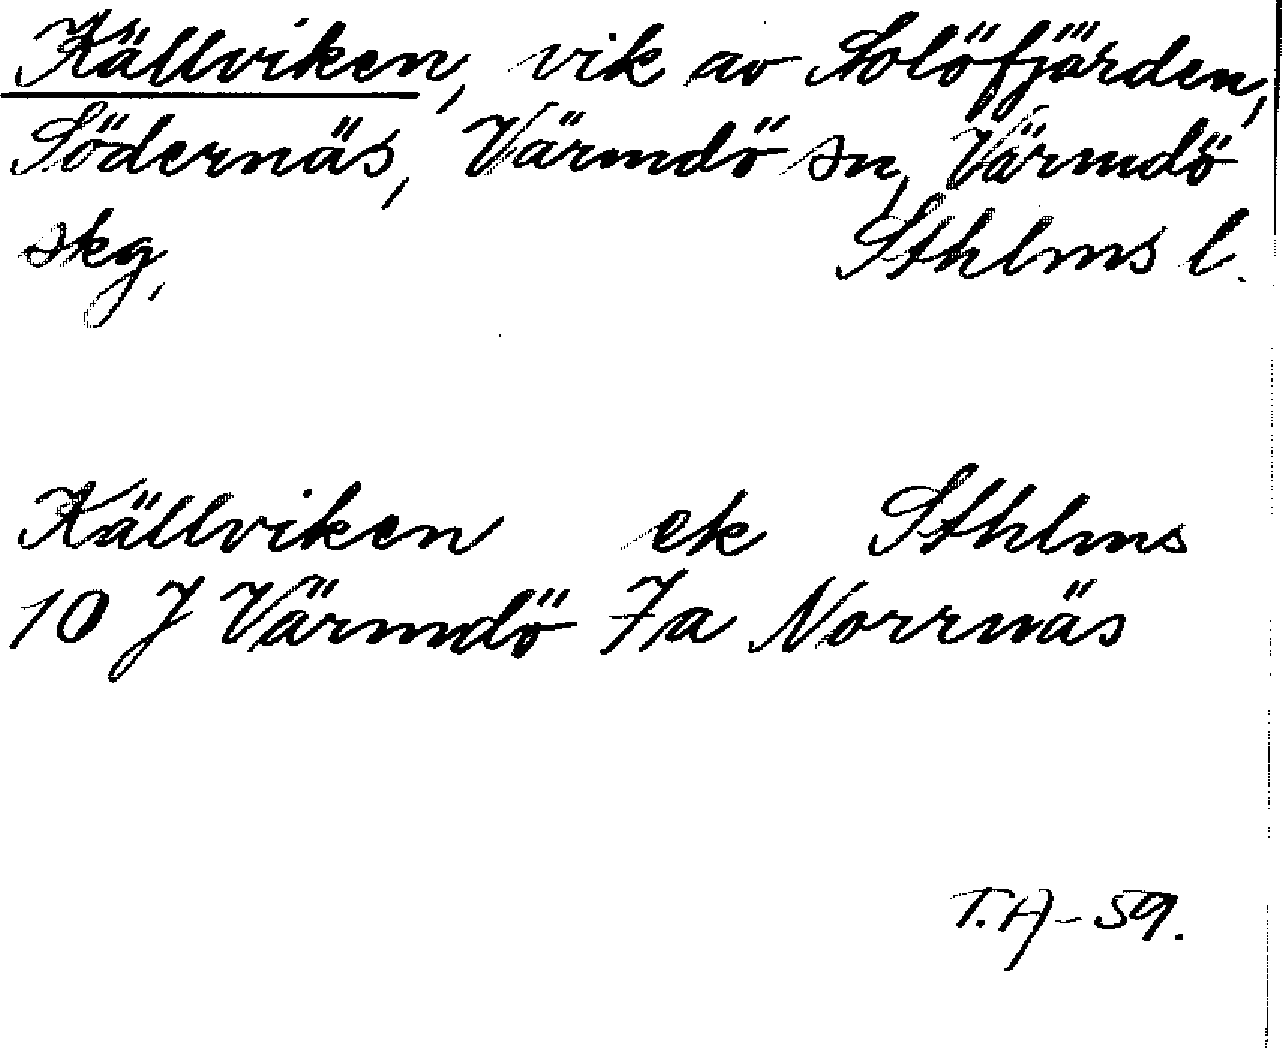 Källviken, vik av Solöfjärden,
Södernäs, Värmdö sn, Värmdö
skg, Sthlms l.
Källviken ek Sthlms
10 J Värmdö 7a Norrnäs
T.H-59.